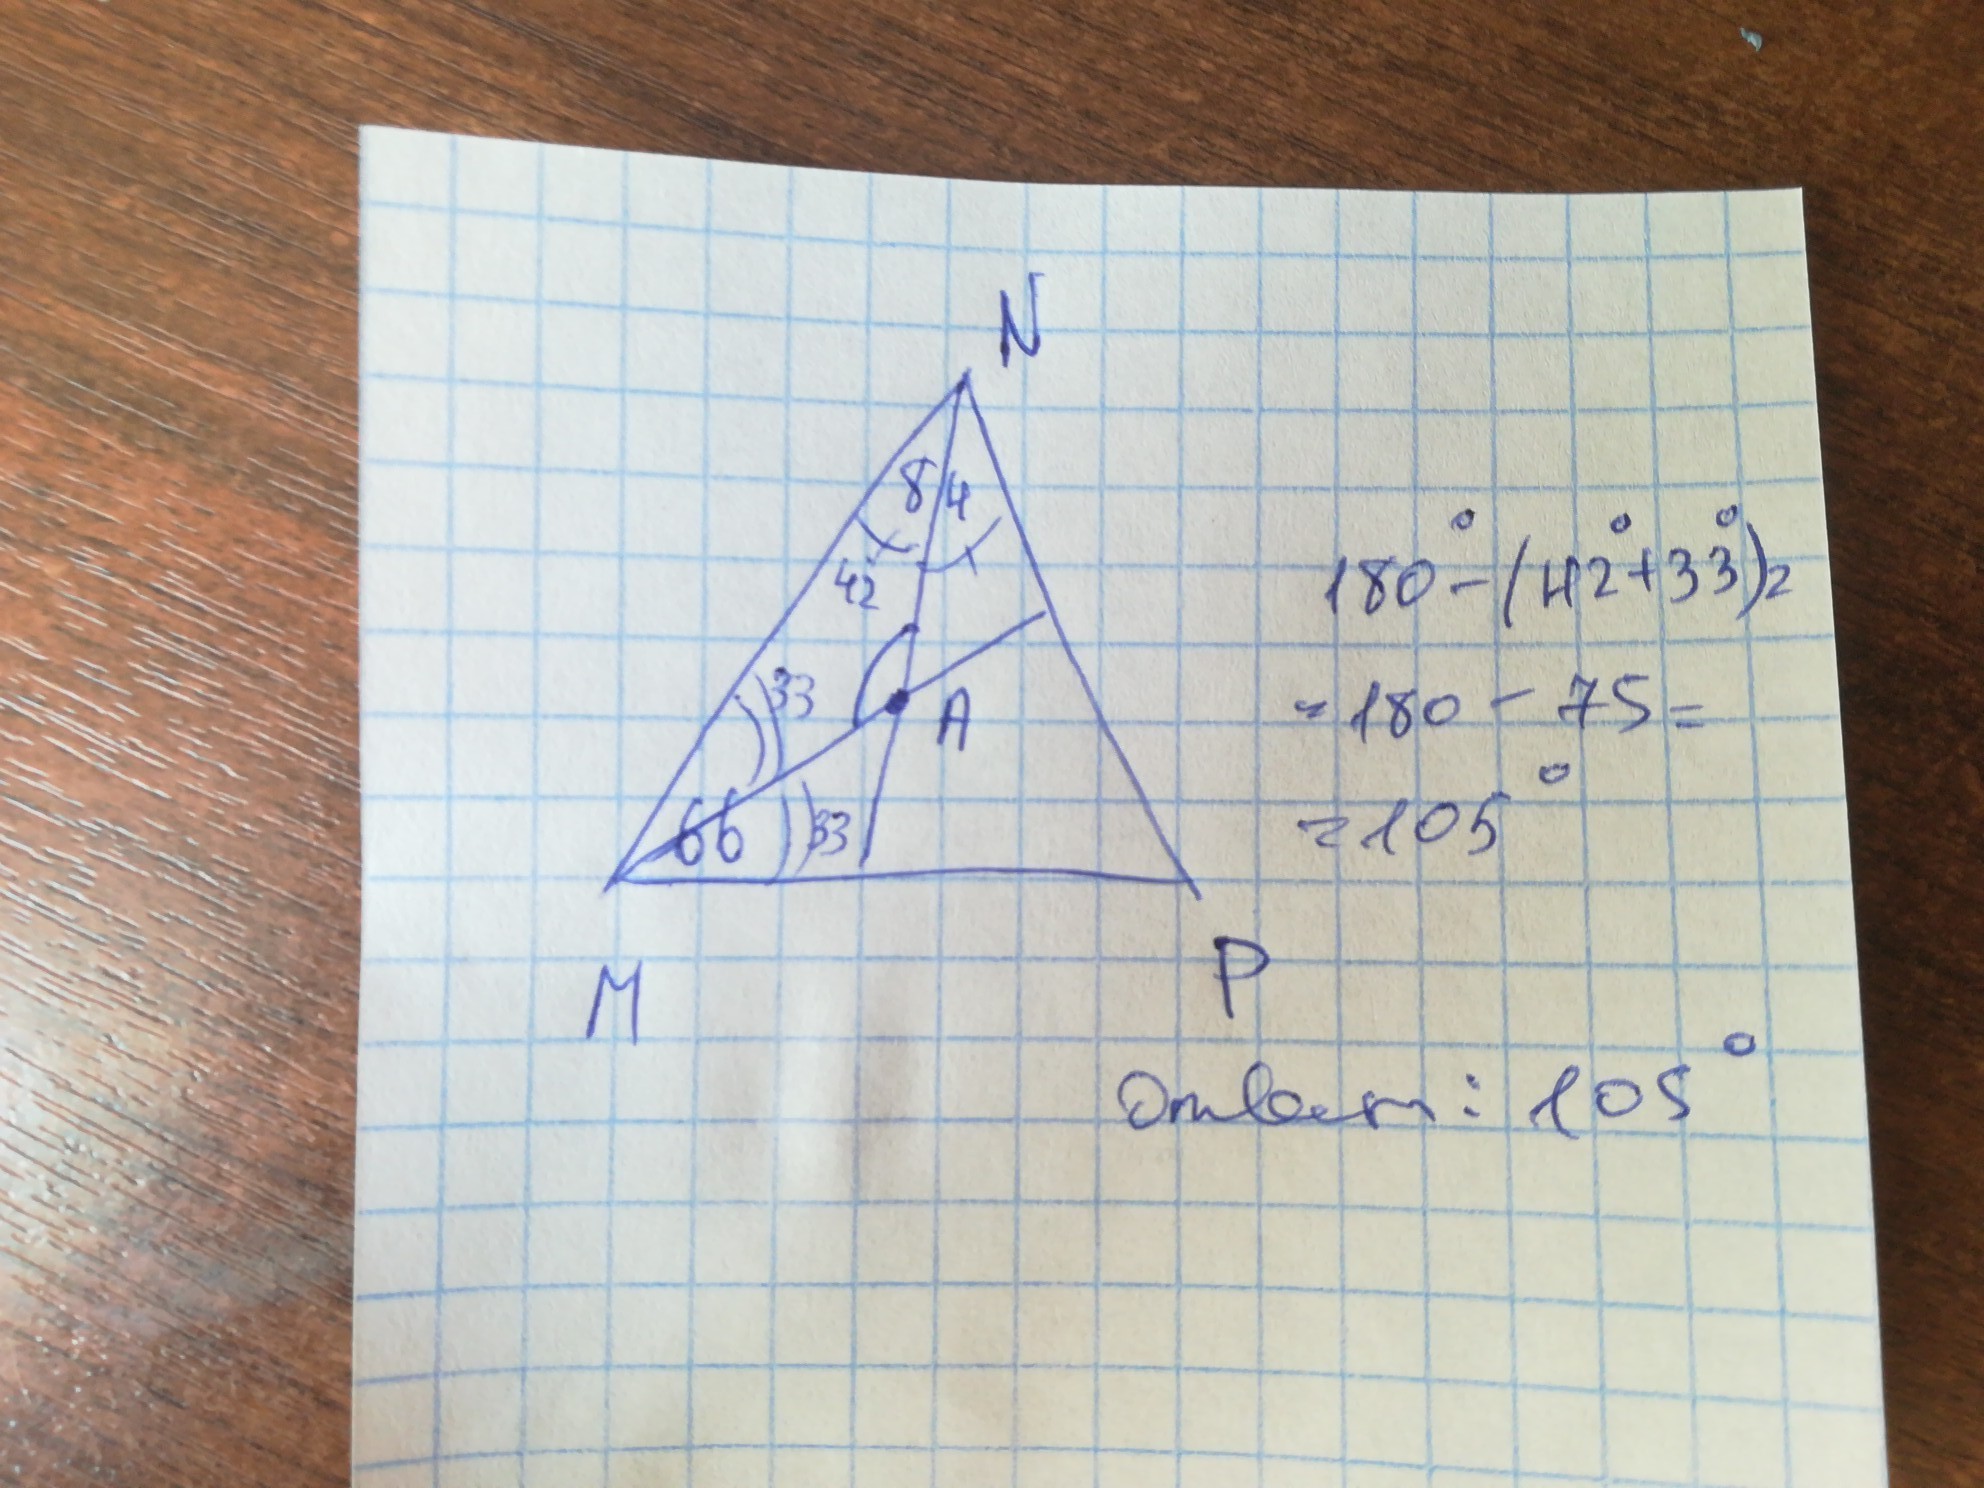 N
84
42
33
A
66
33
M
P
180° - (42° + 33°) =
= 180 - 75 =
= 105°
Ответ: 105°